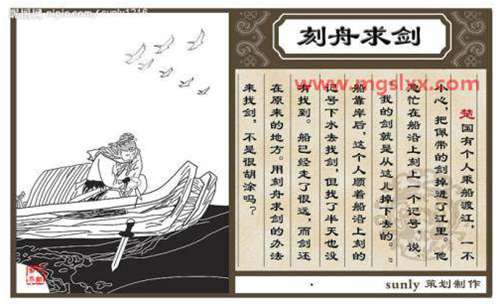 nipic.com/sunly1216
刻舟求剑
www.mgslyx.com
楚国有个人乘船渡江，一不
小心，把佩带的剑掉进了江里他
急忙在船沿上刻上一个记号，说
“我的剑就是从这儿掉下去的。”
船靠岸后，这个人顺着船沿上刻的
记号下水去找剑，但找了半天也没
有找到。船已经走了很远，而剑还
在原来的地方。用刻舟求剑的办法
来找剑，不是很胡涂吗？
sunly 策划制作